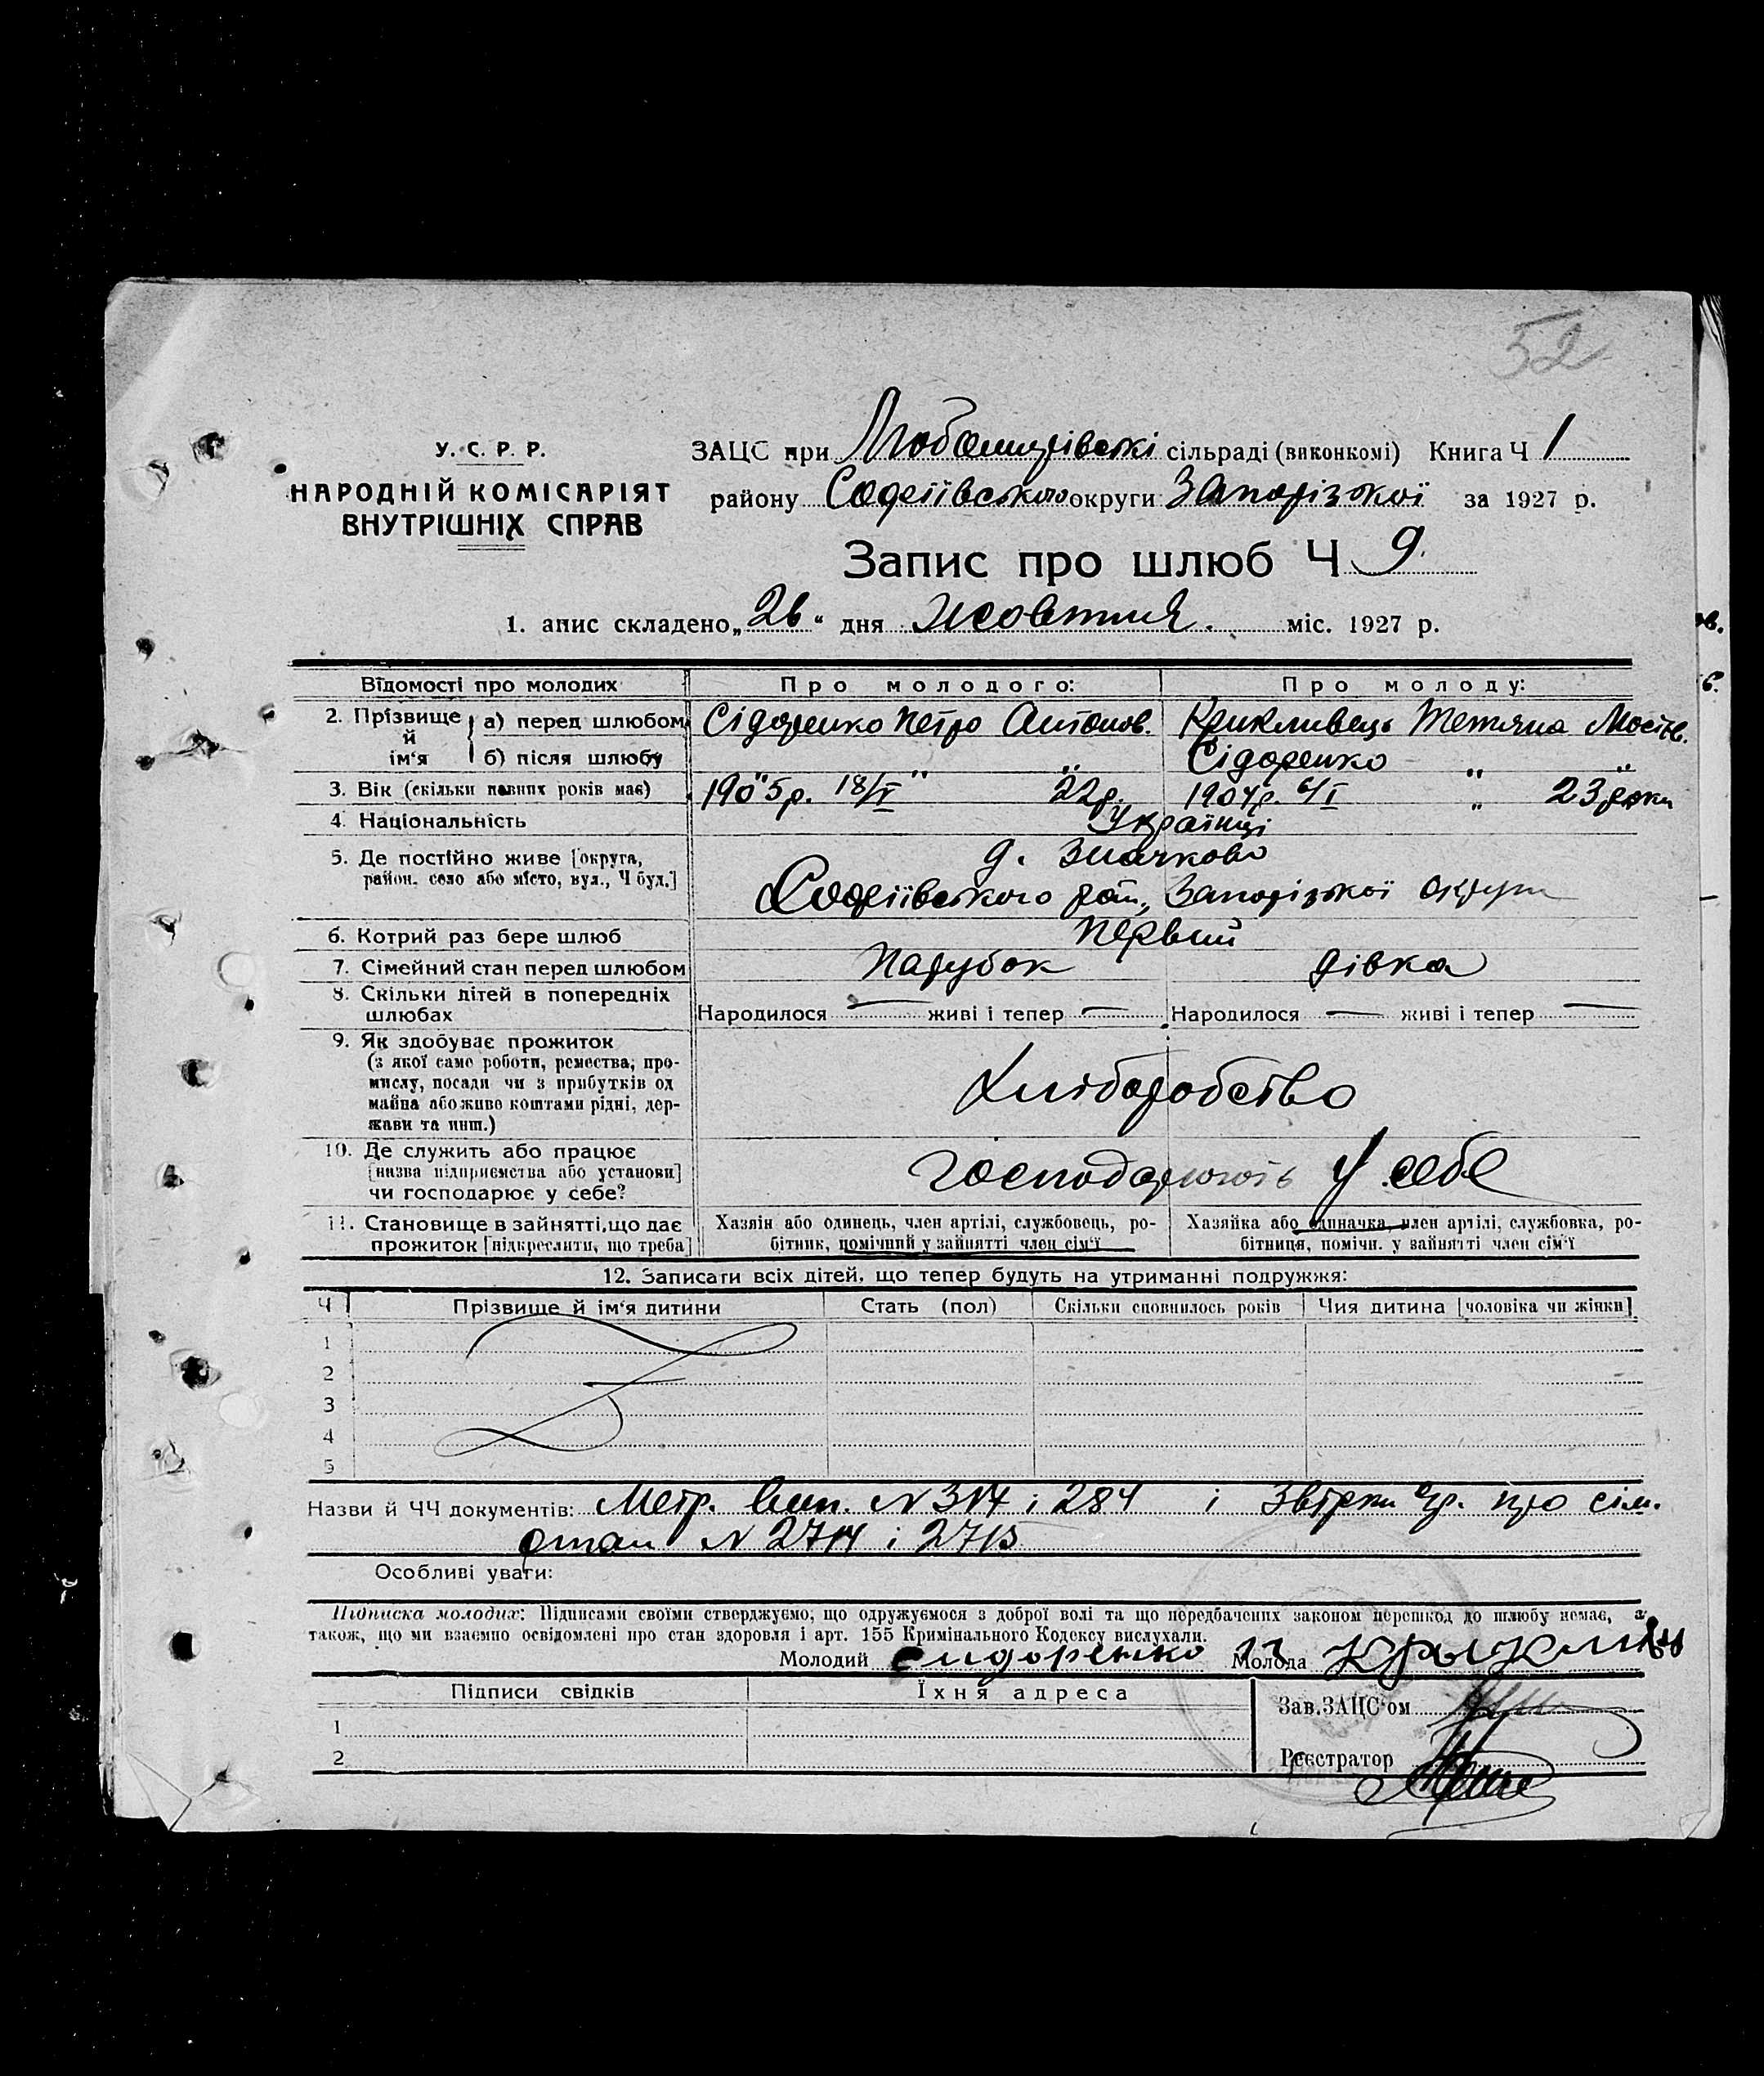 52
У.С.Р.Р.
НАРОДНІЙ КОМІСАРІЯТ
ВНУТРІШНІХ СПРАВ
ЗАЦС при Любомирівскі сільраді (виконкомі) Книга Ч 1
району Софіївського округи Запорізької за 1927 р.
Запис про шлюб Ч 9.
1. апис складено „26“ дня жовтня. міс. 1927 р.
Відомості про молодих
Про молодого:
Про молоду:
2. Прізвище й ім‘я
а) перед шлюбом
Сідоренко Петро Антонов.
Крикливець Тетяна
б) після шлюбу
" " "
Сідоренко " "
3. Вік (скільки певних років має)
1905р. 18/I 22р.
1904р. 6/I " 23 роки
4. Національність
Українці
5. Де постійно живе [округа,
район, село або місто, вул., Ч буд.]
д. Значково
Софіївського рай., Запорізької округи
6. Котрий раз бере шлюб
первий
7. Сімейний стан перед шлюбом
парубок
дівка
8. Скільки дітей в попередніх
шлюбах
Народилося — живі і тепер —
Народилося — живі і тепер —
9. Як здобуває прожиток
(з якої саме роботи, ремества, про-
мислу, посади чи з прибутків од
майна або живе коштами рідні, дер-
жави та инш.)
Хліборобство
10. Де служить або працює
[назва підприємства або установи]
чи господарює у себе?
господарюють у себе
11. Становище в зайнятті, що дає
прожиток [підкреслити, що треба]
Хазяін або одинець, член артілі, службовець, ро-
бітник, помічний у зайнятті член сім‘ї
Хазяйка або одиначка, член артілі, службовка, ро-
бітниця, помічн. у зайнятті член сім‘ї
12. Записати всіх дітей, що тепер будуть на утриманні подружжя:
Ч
Прізвище й ім‘я дитини
Стать (пол)
Скільки сповнилось років
Чия дитина [чоловіка чи жінки]
1
2
3
4
5
Назви й ЧЧ документів: Метр. вип. N 317 і 284 і про сім.
стан N 2714 і 2715
Особливі уваги:
Підписка молодих: Підписами своїми стверджуємо, що одружуємося з доброї волі та що передбачених законом перешкод до шлюбу немає, а
також, що ми взаємно освідомлені про стан здоровля і арт. 155 Кримінального Кодексу вислухали.
Молодий Сидоренко Молода
Підписи свідків
Їхня адреса
1
2
Зав. ЗАЦС‘ом
Реєстратор